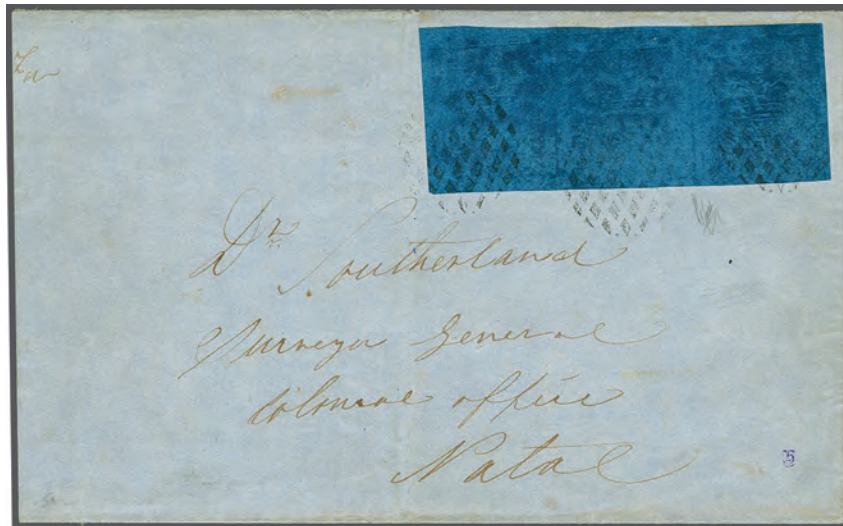 Dr. Southerland
Surveyor General
Colonial office
Natal